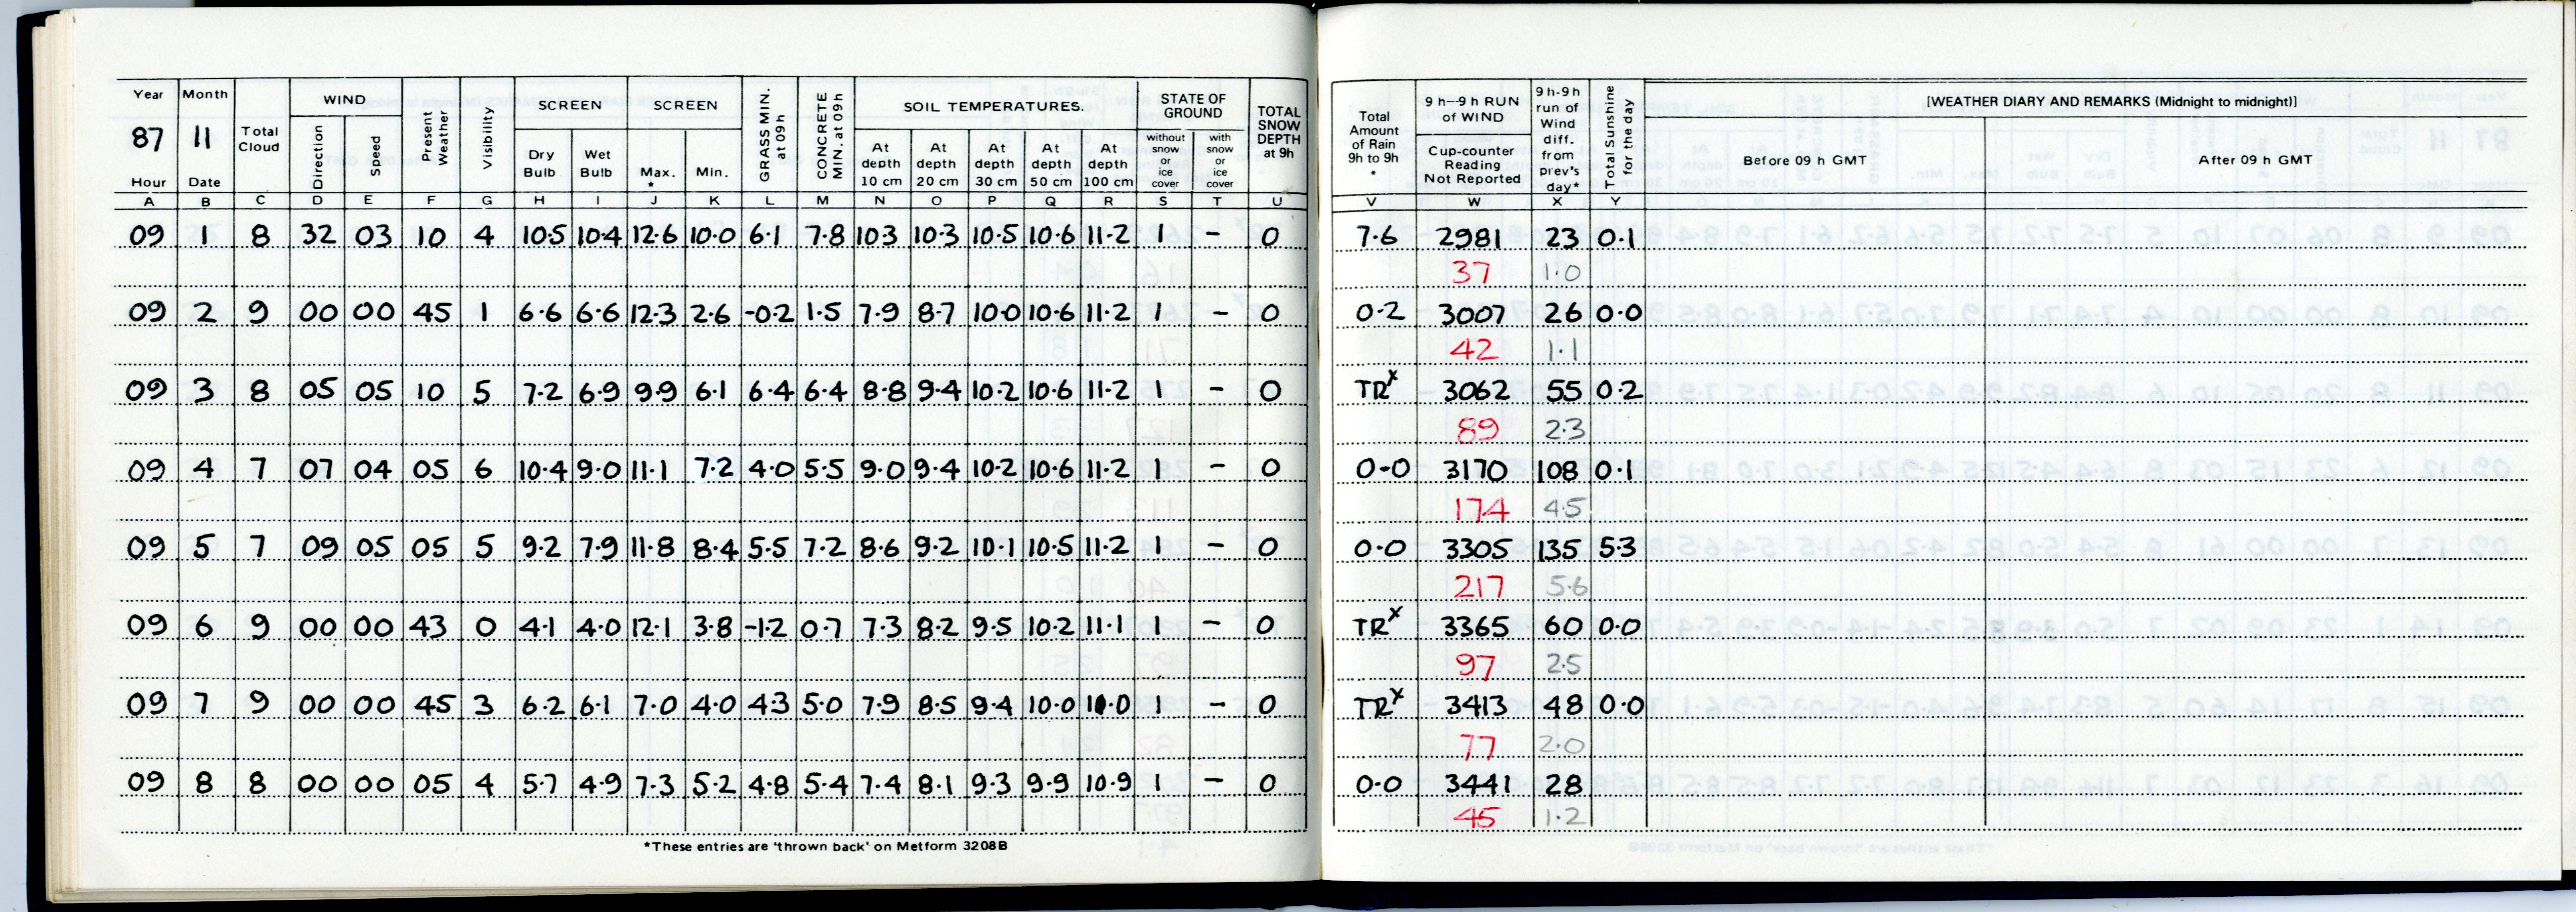 Year Month WIND SCREEN SCREEN SOIL TEMPERATURES. STATE OF GROUND
87 11 Total Cloud Direction Speed Present Weather Visibility Dry Bulb Wet Bulb Max. * Min. GRASS MIN. at 09h CONCRETE MIN. at 09 h At depth 10 cm At depth 20 cm At depth 30 cm At depth 50 cm At depth 100 cm without snow or ice cover with snow or ice cover TOTAL SNOW DEPTH at 9h
Hour Date
A B C D E F G H I J K L M N O P Q R S T U
09 1 8 32 03 10 4 10.5 10.4 12.6 10.0 6.1 7.8 103 10.3 10.5 10.6 11.2 1 - 0
09 2 9 00 00 45 1 6.6 6.6 12.3 2.6 -0.2 1.5 7.9 8.7 10.0 10.6 11.2 1 - 0
09 3 8 05 05 10 5 7.2 6.9 9.9 6.1 6.4 6.4 8.8 9.4 10.2 10.6 11.2 1 - 0
09 4 7 07 04 05 6 10.4 9.0 11.1 7.2 4.0 5.5 9.0 9.4 10.2 10.6 11.2 1 - 0
09 5 7 09 05 05 5 9.2 7.9 11.8 8.4 5.5 7.2 8.6 9.2 10.1 10.5 11.2 1 - 0
09 6 9 00 00 43 0 4.1 4.0 12.1 3.8 -1.2 0.7 7.3 8.2 9.5 10.2 11.1 1 - 0
09 7 9 00 00 45 3 6.2 6.1 7.0 4.0 4.3 5.0 7.9 8.5 9.4 10.0 11.0 1 - 0
09 8 8 00 00 05 4 5.7 4.9 7.3 5.2 4.8 5.4 7.4 8.1 9.3 9.9 10.9 1 - 0
*These entries are 'thrown back' on Metform 3208B
Total Amount of Rain 9h to 9h * 9 h--9 h RUN of WIND Cup-counter Reading Not Reported 9h-9h run of Wind diff. from prev's day* Total Sunshine for the day [WEATHER DIARY AND REMARKS (Midnight to midnight)]
Before 09 h GMT After 09 h GMT
V W X Y
7.6 2981 23 0.1
37 1.0
0.2 3007 26 0.0
42 1.1
TRx 3062 55 0.2
89 2.3
0-0 3170 108 0.1
174 4.5
0.0 3305 135 5.3
217 5.6
TRx 3365 60 0.0
97 2.5
TRx 3413 48 0.0
77 2.0
0.0 3441 28
45 1.2